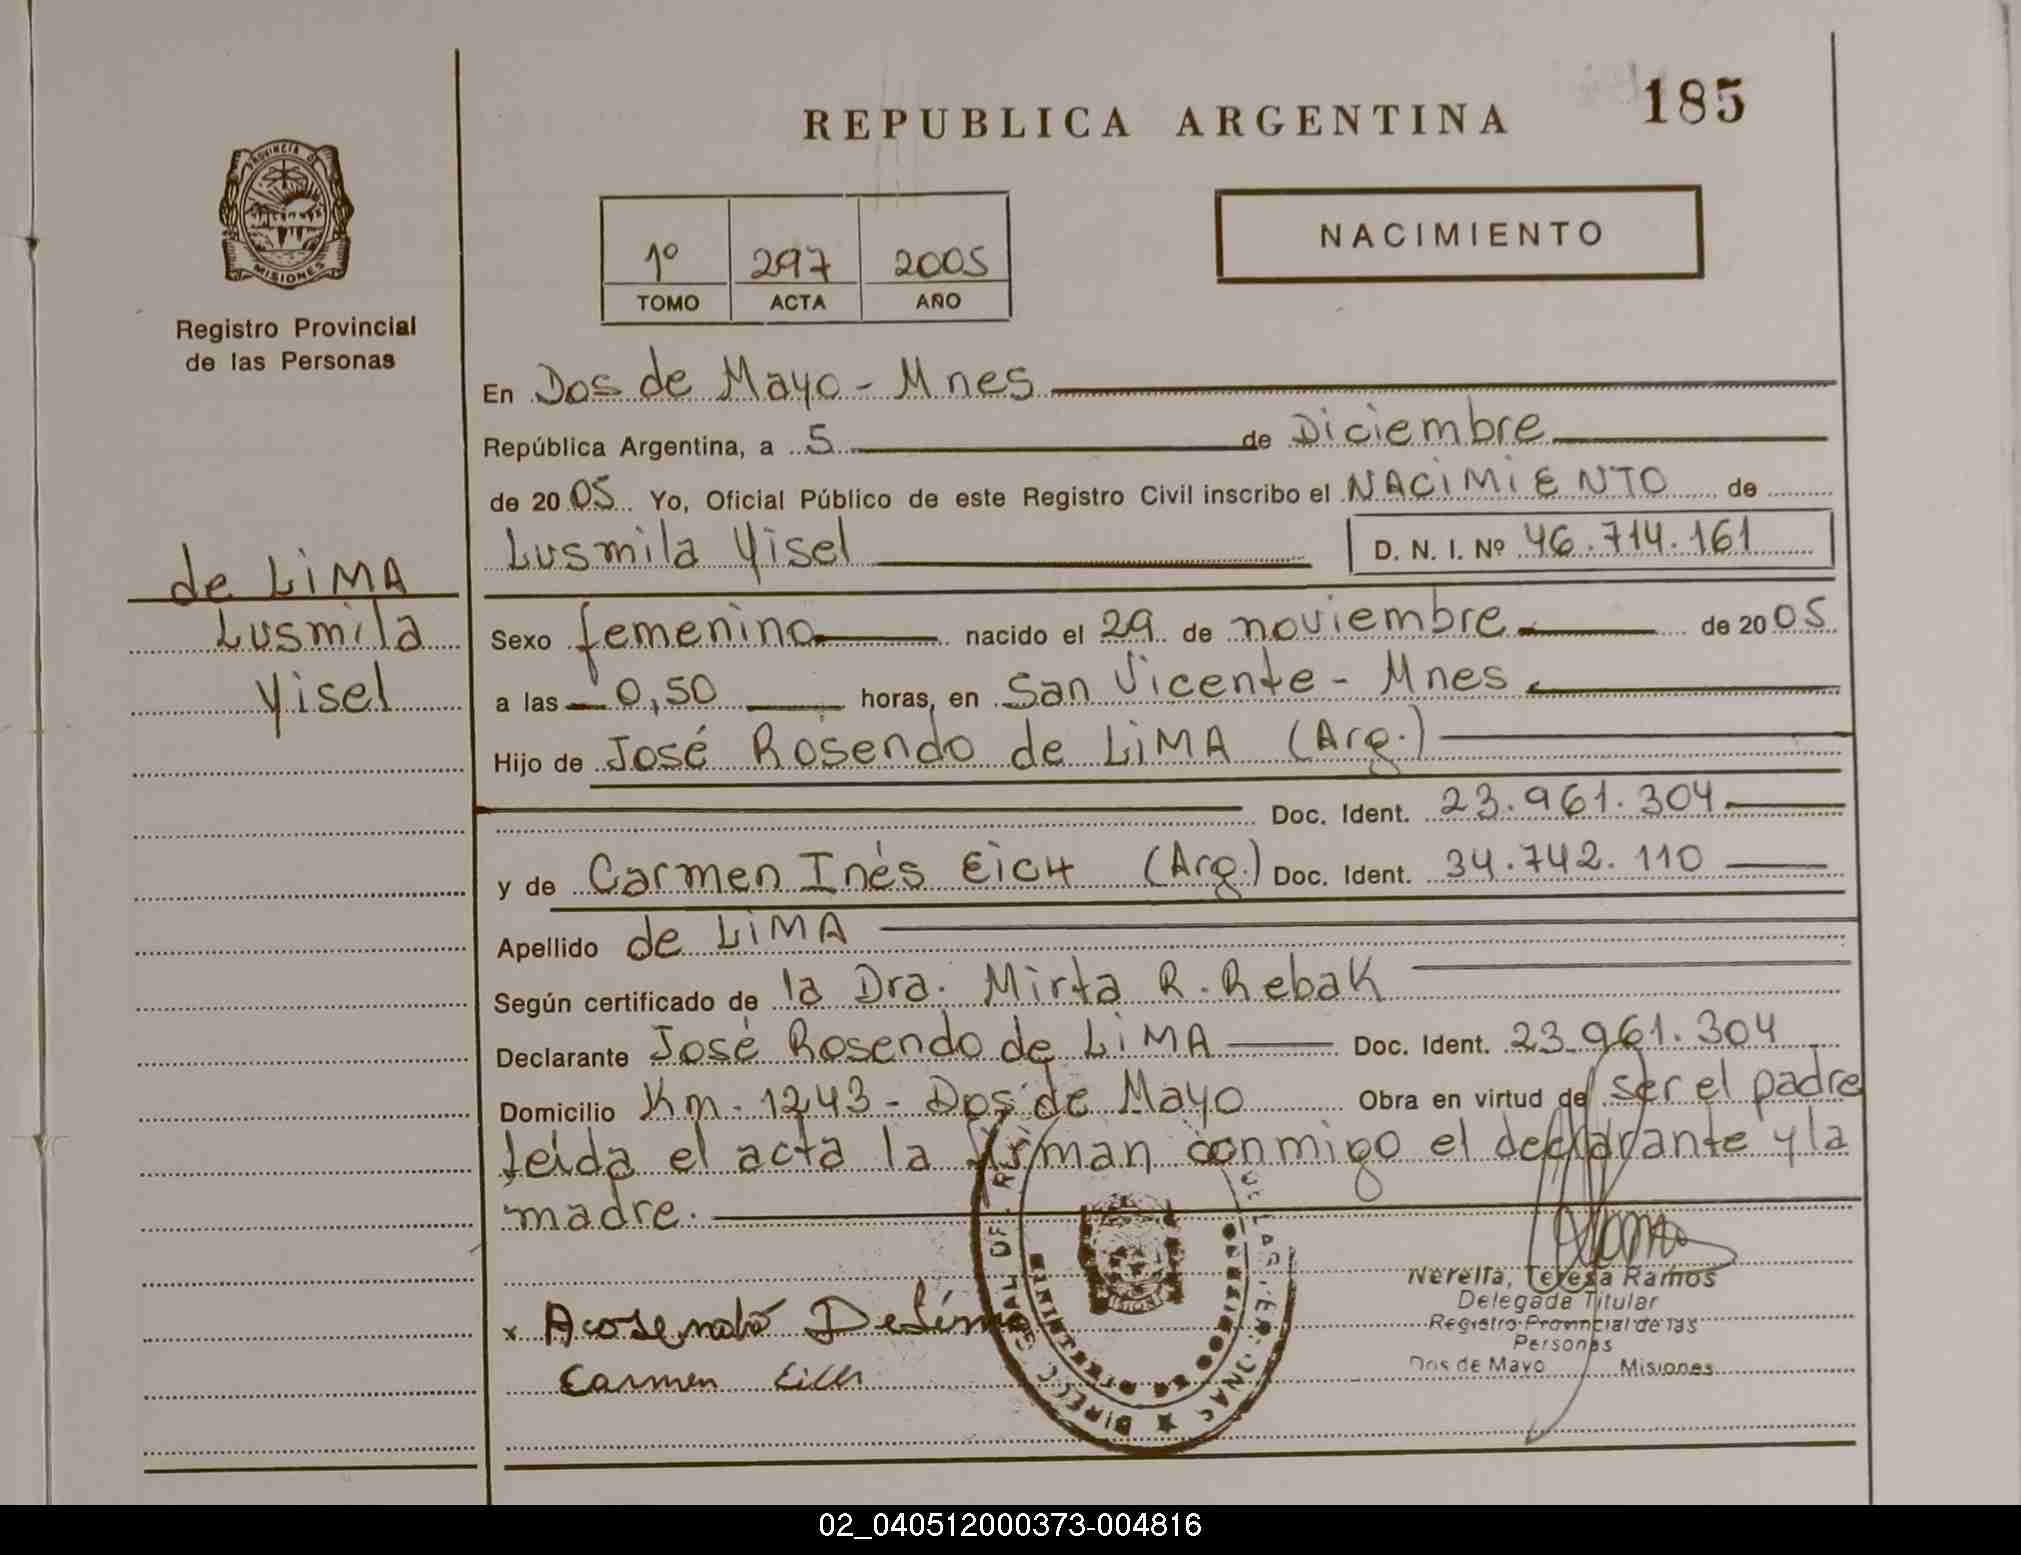 REPUBLICA ARGENTINA
185
PROVINCIA DE
MISIONES
Registro Provincial
de las Personas
1º 297 2005
TOMO ACTA AÑO
NACIMIENTO
En Dos de Mayo - Mnes
República Argentina, a 5 de Diciembre
de 2005 Yo, Oficial Público de este Registro Civil inscribo el NACIMIENTO de
Lusmila Yisel D. N. I. Nº 46.714.161
de LIMA
Lusmila
Yisel
Sexo femenino nacido el 29 de noviembre de 2005
a las 0,50 horas, en San Vicente - Mnes
Hijo de José Rosendo de LIMA (Arg.)
Doc. Ident. 23.961.304
y de Carmen Inés EICH (Arg.) Doc. Ident. 34.742.110
Apellido de LIMA
Según certificado de la Dra. Mirta R. Rebak
Declarante José Rosendo de LIMA Doc. Ident. 23.961.304
Domicilio Km. 1243 - Dos de Mayo Obra en virtud de ser el padre
leida el acta la firman conmigo el declarante y la
madre.
Nerella, Teresa Ramos
Delegada Titular
Registro Provincial de las
Personas
Dos de Mayo Misiones
Carmen Eich
02_040512000373-004816